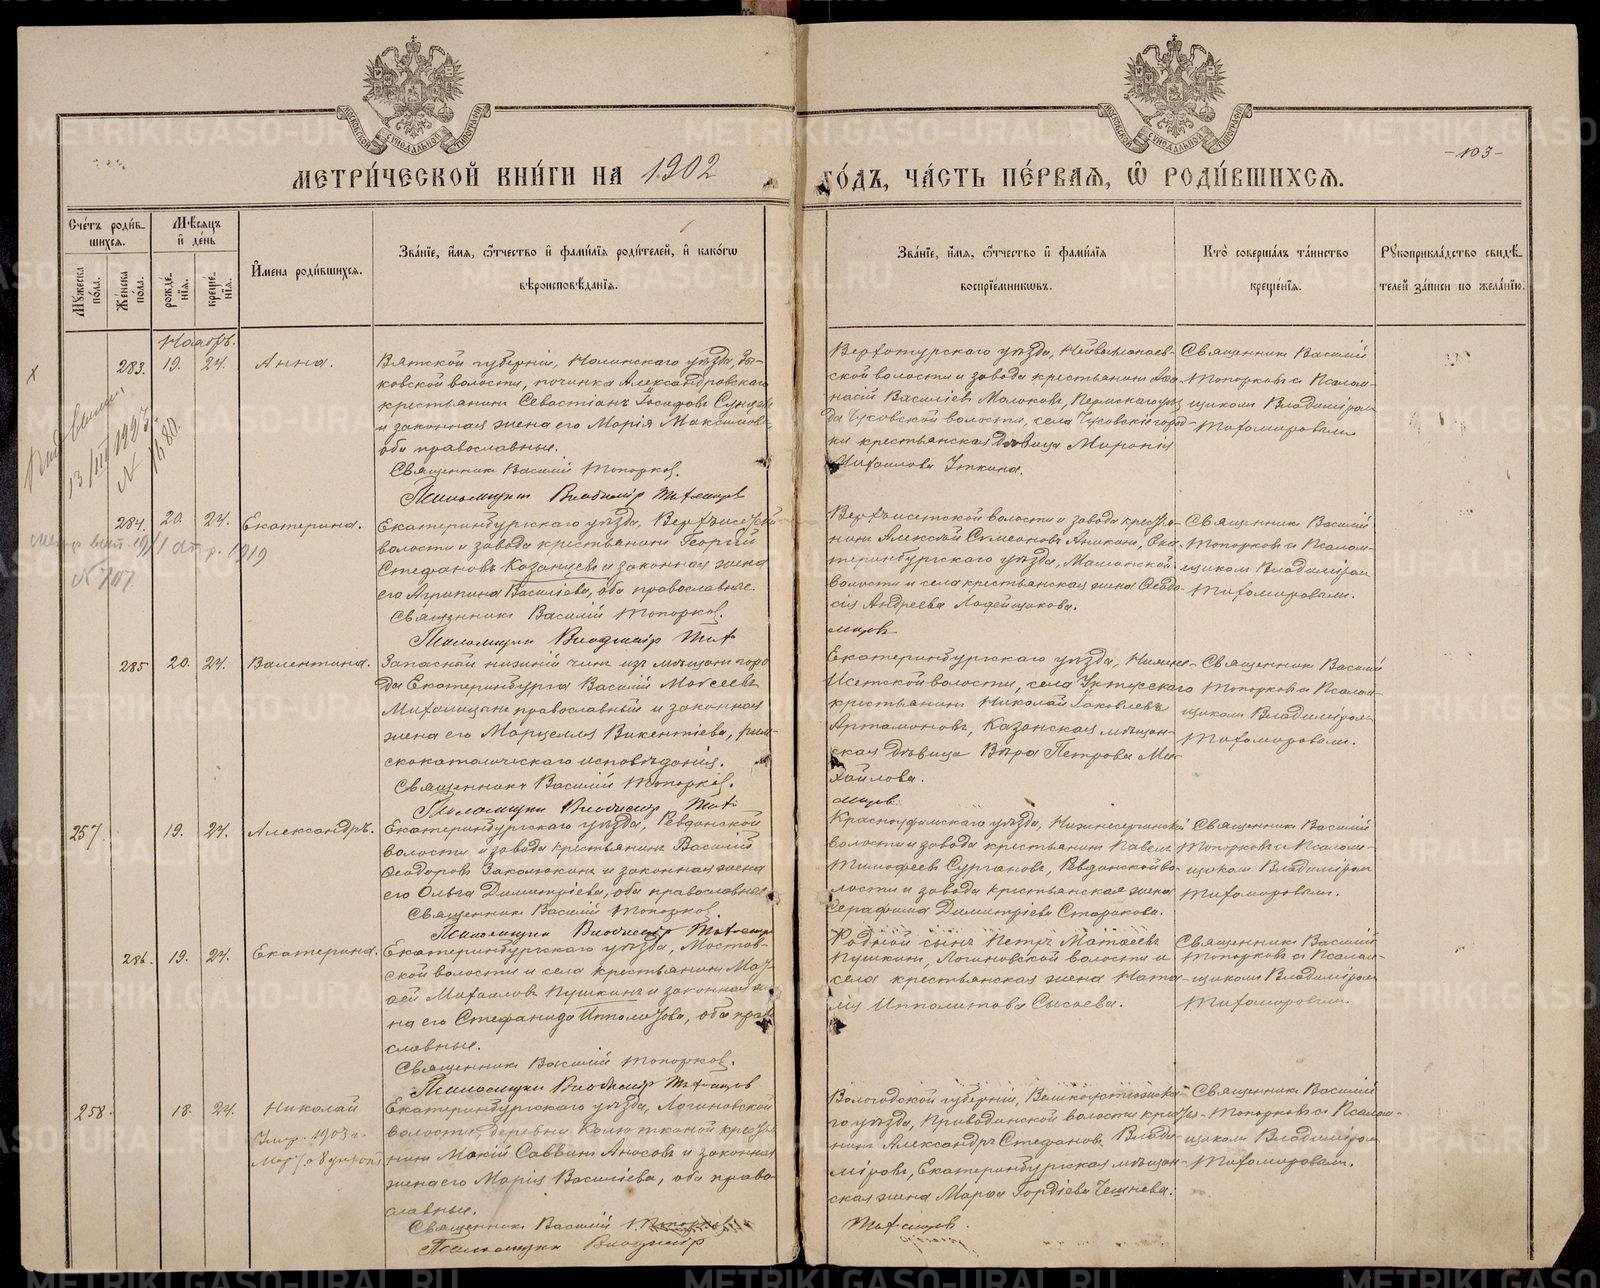 МОСКОВСКОЙ СѴНОДАЛЬНОЙ ТИПОГРАФІИ
МОСКОВСКОЙ СѴНОДАЛЬНОЙ ТИПОГРАФІИ
-103-
МЕТРИ́ЧЕСКОЙ КНИ́ГИ НА 1902 ГО́ДЪ, ЧА́СТЬ ПЕ́РВАѦ, Ѽ РОДИ́ВШИХСѦ.
Сче́тъ роди́в-
шихсѧ.
Мꙋ́жеска по́ла.
Же́нска по́ла.
Мѣ́сѧцъ и҆ де́нь
рожде́-
нїѧ.
креще́-
нїѧ.
И҆мена̀ роди́вшихсѧ.
Зва́нїе, и҆́мѧ, ѻ҆́тчество и҆ фами́лїѧ роди́телей, и҆ како́гѡ
вѣроисповѣ́данїѧ.
Зва́нїе, и҆́мѧ, ѻ҆́тчество и҆ фами́лїѧ
воспрїе́мникѡвъ.
Кто̀ соверша́лъ та́инство
креще́нїѧ.
Рꙋкоприкла́дство свидѣ́-
телей за́писи по жела́нїю.
Ноябрь.
283. 19. 24. Анна.
Вятской губерніи, Нолинскаго уѣзда, Зы-
ковской волости, починка Александровскаго
крестьянинъ Севастіанъ Іосифовъ
и законная жена его Марія Максимова,
оба православные.
Священникъ Василій Топорковъ.
Псаломщикъ Владиміръ Тихомировъ
Верхотурскаго уѣзда, Нейвошайтан-
ской волости и завода крестьянинъ Аѳа-
насій Васильевъ Молоковъ, Пермскаго уѣз-
да Чусовской волости, села
крестьянская дѣвица Миронія
Михаилова Уткина.
Священникъ Василій
Топорковъ съ Псалом-
щикомъ Владиміромъ
Тихомировымъ
13/III 1923
N 1680.
284. 20. 24. Екатерина.
1919
N 707
Екатеринбургскаго уѣзда, Верхъисетской
волости и завода крестьянинъ Георгій
Стефановъ Казанцевъ и законная жена
его Агрипина Васильева, оба православные.
Священникъ Василій Топорковъ.
Псаломщикъ Владиміръ Тихо
мировъ
Верхъисетской волости и завода крестья-
нинъ Алексѣй Симеоновъ Аникинъ, Ека-
теринбургскаго уѣзда,
волости и села крестьянская жена Ѳеодо-
сія Андреева Ладейщикова.
Священникъ Василій
Топорковъ съ Псалом-
щикомъ Владиміромъ
Тихомировымъ.
285 20. 24. Валентина.
Запасный нижній чинъ изъ мѣщанъ горо
да Екатеринбурга Василій Моѵсеевъ
православный и законная
жена его Марцелла Викентіева, рим-
скокатолическаго исповѣданія.
Священникъ Василій Топорковъ.
Псаломщикъ Владиміръ Тихо
мировъ.
Екатеринбургскаго уѣзда, Нижне-
Исетской волости, села Уктусскаго
крестьянинъ Николай Іаковлевъ
Артамоновъ, Казанская мѣщан-
ская дѣвица Вѣра Петрова Ми-
хайлова.
Священникъ Василій
Топорковъ съ Псалом-
щикомъ Владиміромъ
Тихомировымъ.
257 19. 24. Александръ.
Екатеринбургскаго уѣзда, Ревдинской
волости и завода крестьянинъ Василій
Ѳеодоровъ Заколюкинъ и законная жена
его Ольга Димитріева, оба православные
Священникъ Василій Топорковъ.
Псаломщикъ Владиміръ Тихомир
Красноуфимскаго уѣзда, Нижнесергинской
волости и завода крестьянинъ Павелъ
Тимоѳеевъ Сургановъ, Ревдинской во-
лости и завода крестьянская жена
Серафима Димитріева Старикова.
Священникъ Василій
Топорковъ съ Псалом-
щикомъ Владиміромъ
Тихомировымъ.
286. 19. 24. Екатерина.
Екатеринбургскаго уѣзда, Мостов-
ской волости и села крестьянинъ Мат-
ѳей Михаиловъ Пушкинъ и законная же
на его Стефанида Ипполитова, оба право
славные.
Священникъ Василій Топорковъ.
Псаломщикъ Владиміръ Тихомировъ
Родной сынъ Петръ Матѳеевъ
Пушкинъ, Логиновской волости и
села крестьянская жена Ната-
лія Ипполитова Сысоева.
Священникъ Василій
Топорковъ съ Псалом-
щикомъ Владиміромъ
Тихомировымъ.
258. 18. 24. Николай
Умер. 1903 г.
Екатеринбургскаго уѣзда, Логиновской
волости, деревни Колюткиной крестья
нинъ Мокій Саввинъ Аносовъ и законная
жена его Марія Васильева, оба право
славные.
Священникъ Василій Топорковъ
Псаломщикъ Владиміръ
Тихомировъ.
Вологодской губерніи, Великоустюжска-
го уѣзда, Приводинской волости крестья-
нинъ Александръ Стефановъ Влади-
міровъ, Екатеринбургская мѣщан-
ская жена Марѳа Гордіева Чешнева.
Священникъ Василій
Топорковъ съ Псалом-
щикомъ Владиміромъ
Тихомировымъ.
METRIKI.GASO-URAL.RU